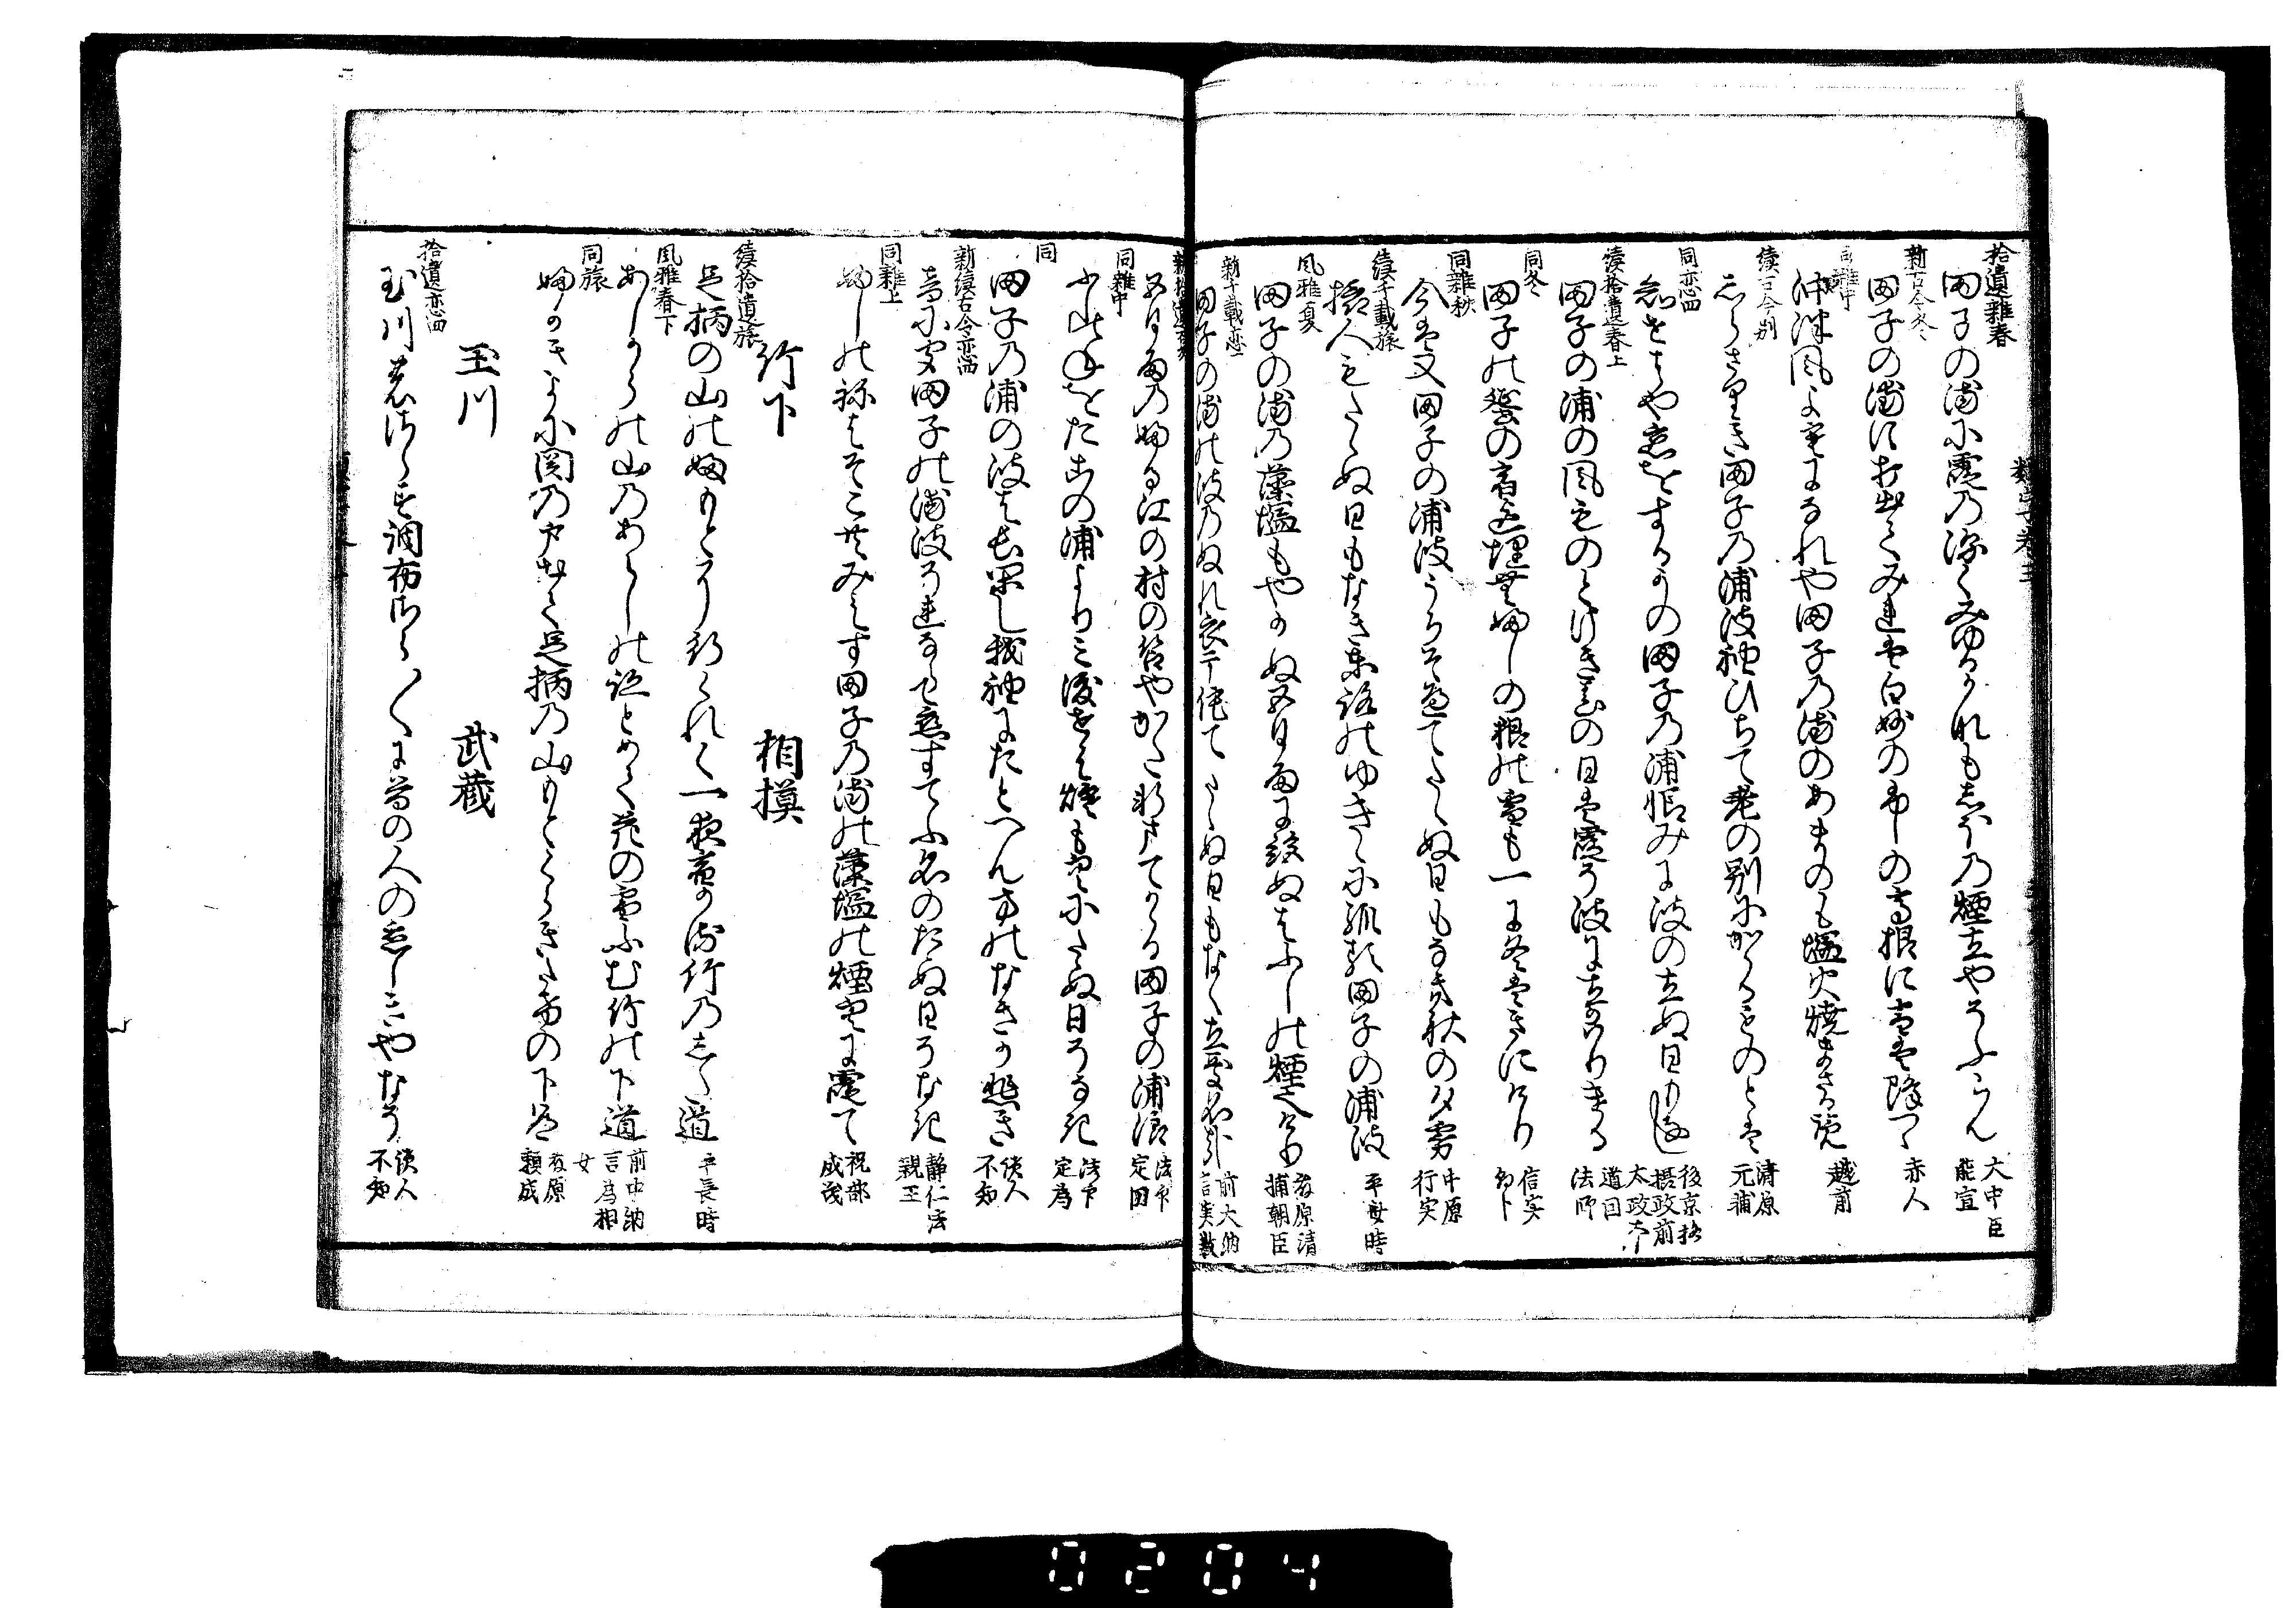 拾遺雑春
田子の浦に霞の深くみゆるかなもしほの煙立やそふらん 大中臣能宣
新古今冬
田子の浦に打出てみれは白妙のふしの高根に雪は降つゝ 赤人
同雑中
沖津風夜寒になれや田子の浦のあまのも塩火焼まさる覧 越前
續古今別
しらさりき田子の浦波袖ひちて老の別にかゝるものとは 清原元輔
同恋四
忘すよ
するかの田子の浦恨みに波の立ぬ日は 後京極摂政前太政大
續拾遺春上
田子の浦の風ものとけき春の日は霞そ波に立かはりける 道因法師
同冬
田子の
の宿迄埋むふしの根の雪も一に冬はきにけり 信実朝卜
同雑秋
今は又田子の浦波うちそへてたゝぬ日もなき秋の夕雾 中原行実
續千載旅
旅人もたゝぬ日もなき東路のゆきゝに
田子の浦波 平宣時
風雅夏
田子の浦の藻塩もやかぬ五月雨に絶ぬはふしの煙也けり 藤原清輔朝臣
新千載恋二
田子の浦の波のぬれ衣干侘てたゝぬ日もなく立
前大納言実教
五月雨のふる江の村の苫やかた軒まてかゝる田子の浦浪 法下定円
同雑中
ふしのねをたこの浦よりみ渡せは煙も空にたゝぬ日そなき 法下定為
同
田子の浦の波は長閑し我袖にたとへん方のなきか悲き 読人不知
新續古今恋四
音に聞田子の浦波それならて恋すてふ名のたゝぬ日そなき 静仁法親王
同雑上
ふしの根はそこともみえす田子の浦の藻塩の煙空に霞て 祝部成茂
竹下 相摸
續拾遺旅
足柄の山のふもとに行くれて一夜宿かる竹の下道 平長時
風雅春下
あしからの山のあらしの跡とめて花の雪ふむ竹の下道 前中納言為相女
同旅
関の戸出て足柄の山もとくらき竹の下道 藤原頼成
玉川 武蔵
拾遺恋四
玉川にさらす調布さら〱に昔の人の恋しきやなそ 読人不知
0204